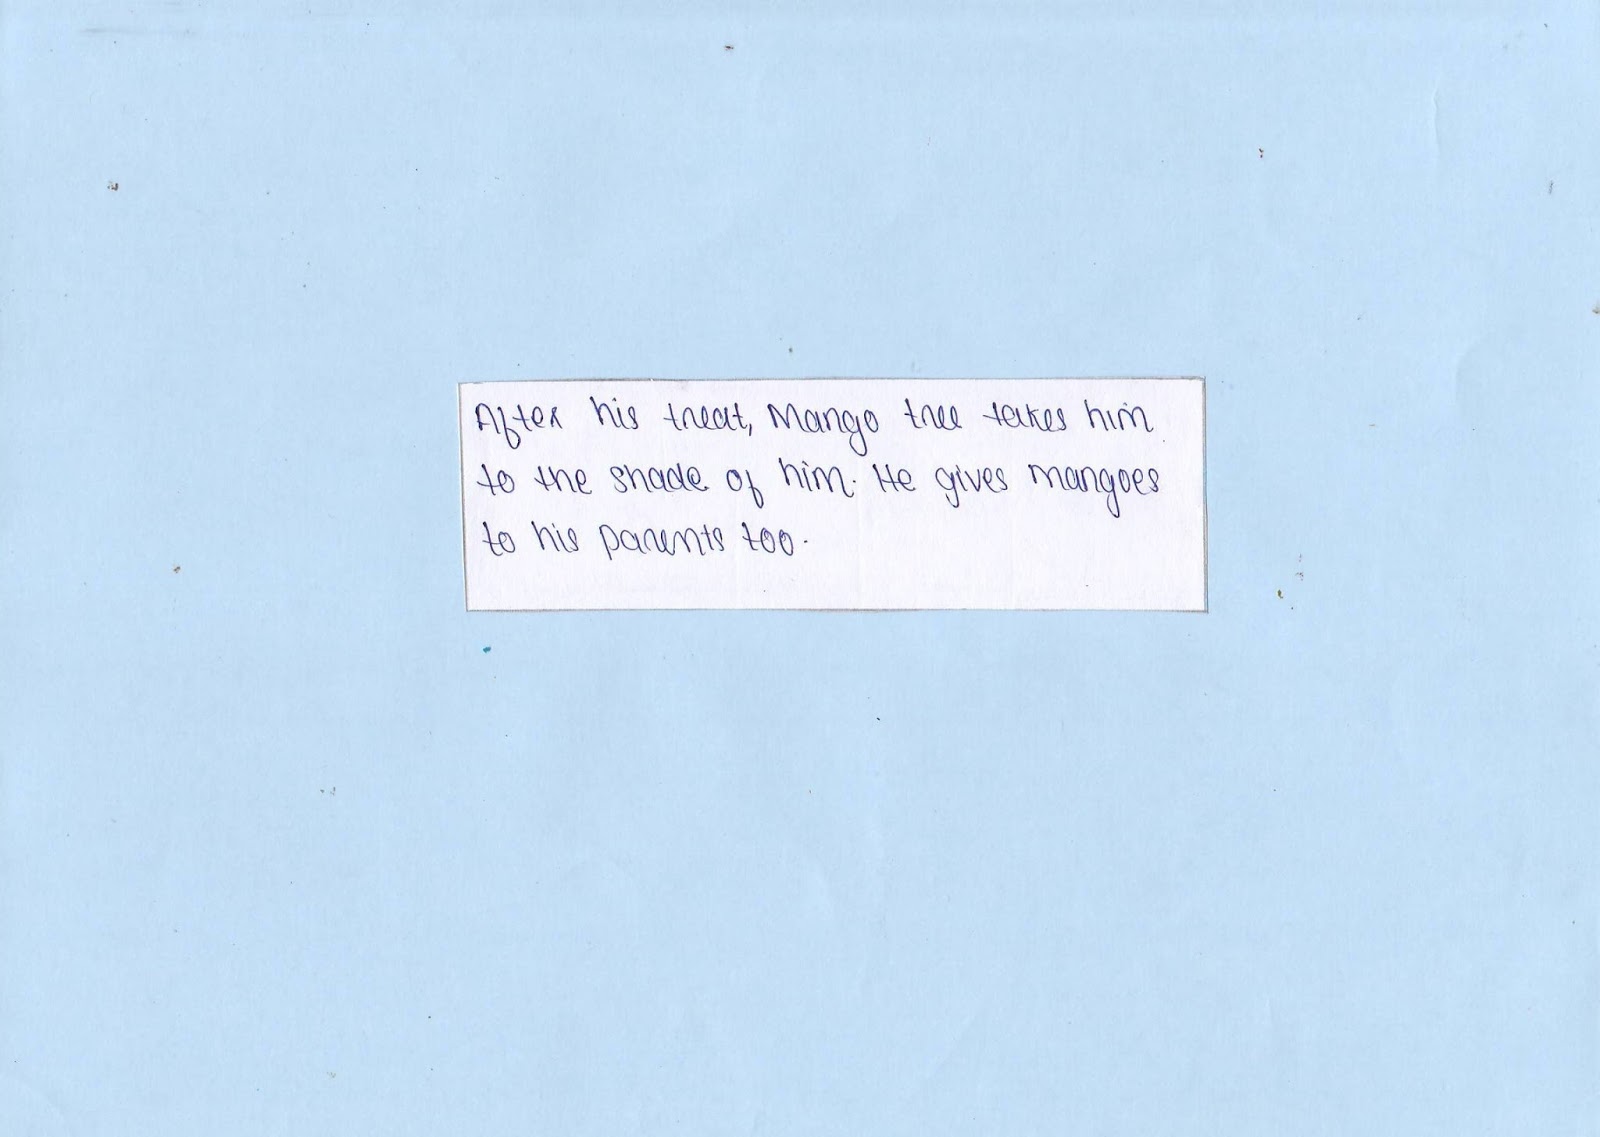 After his treat, Mango tree takes him
to the shade of him. He gives mangoes
to his parents too.